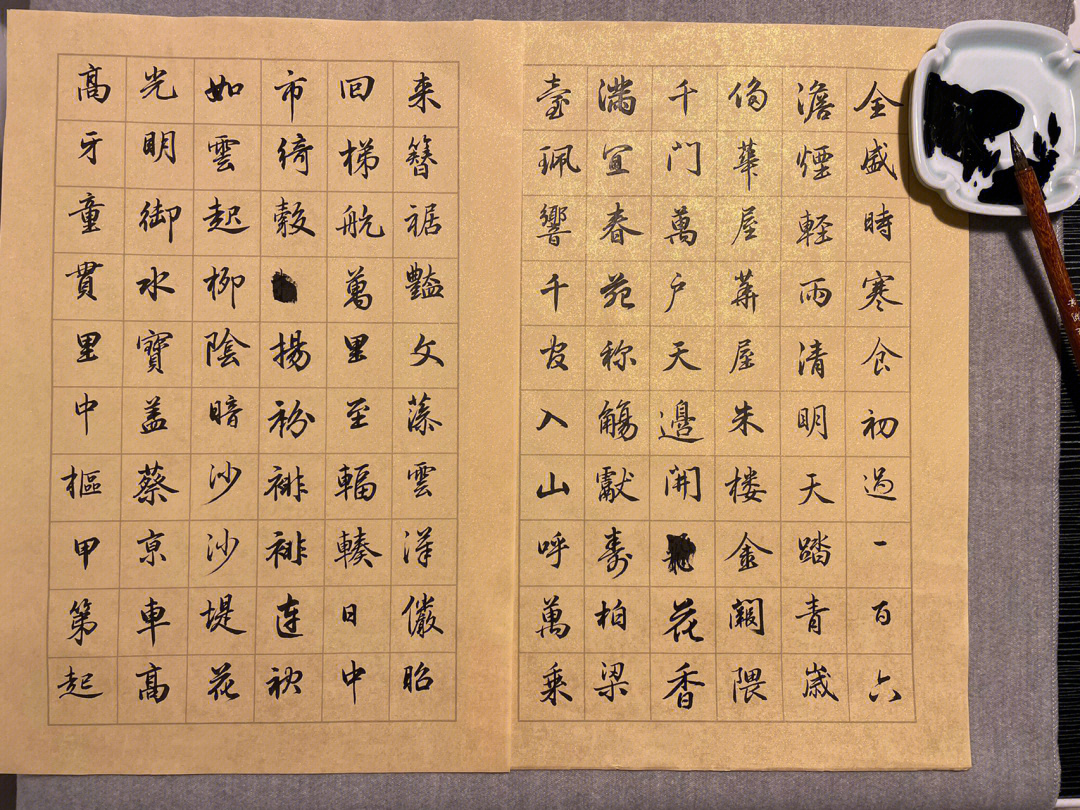 全盛時寒食初過一百六
澹煙軽雨清明天踏青歳
華屋屋朱楼金闕隈
千門萬户天邊開花香
满宜春苑称觴獻壽柏梁
臺珮響千官入山呼萬乗
来簪裾豔文藻雲漢儼昭
回梯航萬里至輻輳日中
市綺縠揚衯裶裶连袂
如雲起柳陰暗沙沙堤花
光明御水寶盖蔡京車高
高牙童貫里中樞甲第起